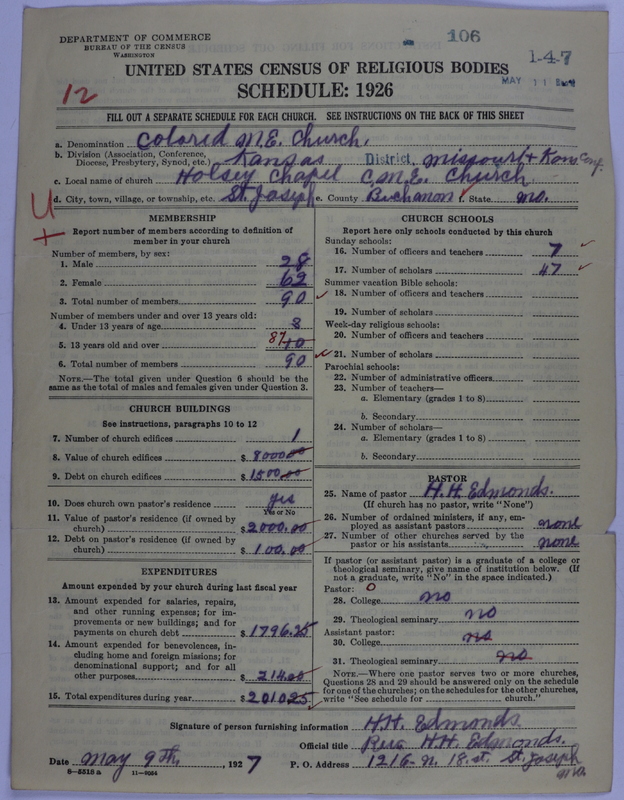 DEPARTMENT OF COMMERCE
BUREAU OF THE CENSUS
WASHINGTON
106
1-4-7
MAY 11
UNITED STATES CENSUS OF RELIGIOUS BODIES
SCHEDULE: 1926
12
FILL OUT A SEPARATE SCHEDULE FOR EACH CHURCH. SEE INSTRUCTIONS ON THE BACK OF THIS SHEET
a. Denomination Colored M.E. Church.
b. Division (Association, Conference, Diocese, Presbytery, Synod, etc.) Kansas District, Missouri & Kans Conf.
c. Local name of church Holsey Chapel C.M.E. Church
d. City, town, village, or township, etc. St. Joseph e. County Buchanon f. State Mo.
U
+
MEMBERSHIP
Report number of members according to definition of
member in your church
Number of members, by sex:
1. Male 28
2. Female 62
3. Total number of members 90
Number of members under and over 13 years old:
4. Under 13 years of age 8
5. 13 years old and over 87 10
6. Total number of members 90
NOTE.—The total given under Question 6 should be
same as the total of males and females given under Question 3.
CHURCH BUILDINGS
See instructions, paragraphs 10 to 12
7. Number of church edifices 1
8. Value of church edifices $ 8000.00
9. Debt on church edifices $ 1500.00
10. Does church own pastor's residence yes
Yes or No
11. Value of pastor's residence (if owned by
church) $ 2000.00
12. Debt on pastor's residence (if owned by
church) $ 100.00
EXPENDITURES
Amount expended by your church during last fiscal year
13. Amount expended for salaries, repairs,
and other running expenses; for im-
provements or new buildings; and for
payments on church debt $ 1796.25
14. Amount expended for benevolences, in-
cluding home and foreign missions; for
denominational support; and for all
other purposes $ 214.00
15. Total expenditures during year $ 2010.25
CHURCH SCHOOLS
Report here only schools conducted by this church
Sunday schools:
16. Number of officers and teachers 7
17. Number of scholars 47
Summer vacation Bible schools:
18. Number of officers and teachers
19. Number of scholars
Week-day religious schools:
20. Number of officers and teachers
21. Number of scholars
Parochial schools:
22. Number of administrative officers
23. Number of teachers—
a. Elementary (grades 1 to 8)
b. Secondary
24. Number of scholars—
a. Elementary (grades 1 to 8)
b. Secondary
PASTOR
25. Name of pastor H.H. Edmonds.
(If church has no pastor, write "None")
26. Number of ordained ministers, if any, em-
ployed as assistant pastors none
27. Number of other churches served by the
pastor or his assistants none
If pastor (or assistant pastor) is a graduate of a college or
theological seminary, give name of institution below. (If
not a graduate, write "No" in the space indicated.)
Pastor: O
28. College no
29. Theological seminary no
Assistant pastor:
30. College no
31. Theological seminary no
NOTE.—Where one pastor serves two or more churches,
Questions 28 and 29 should be answered only on the schedule
for one of the churches; on the schedules for the other churches,
write "See schedule for church."
Signature of person furnishing information H.H. Edmonds.
Official title Rev. H.H. Edmonds.
Date May 9th, 1927 P. O. Address 1216-N. 18.st. St. Joseph Mo.
8-5518 a 11-9084